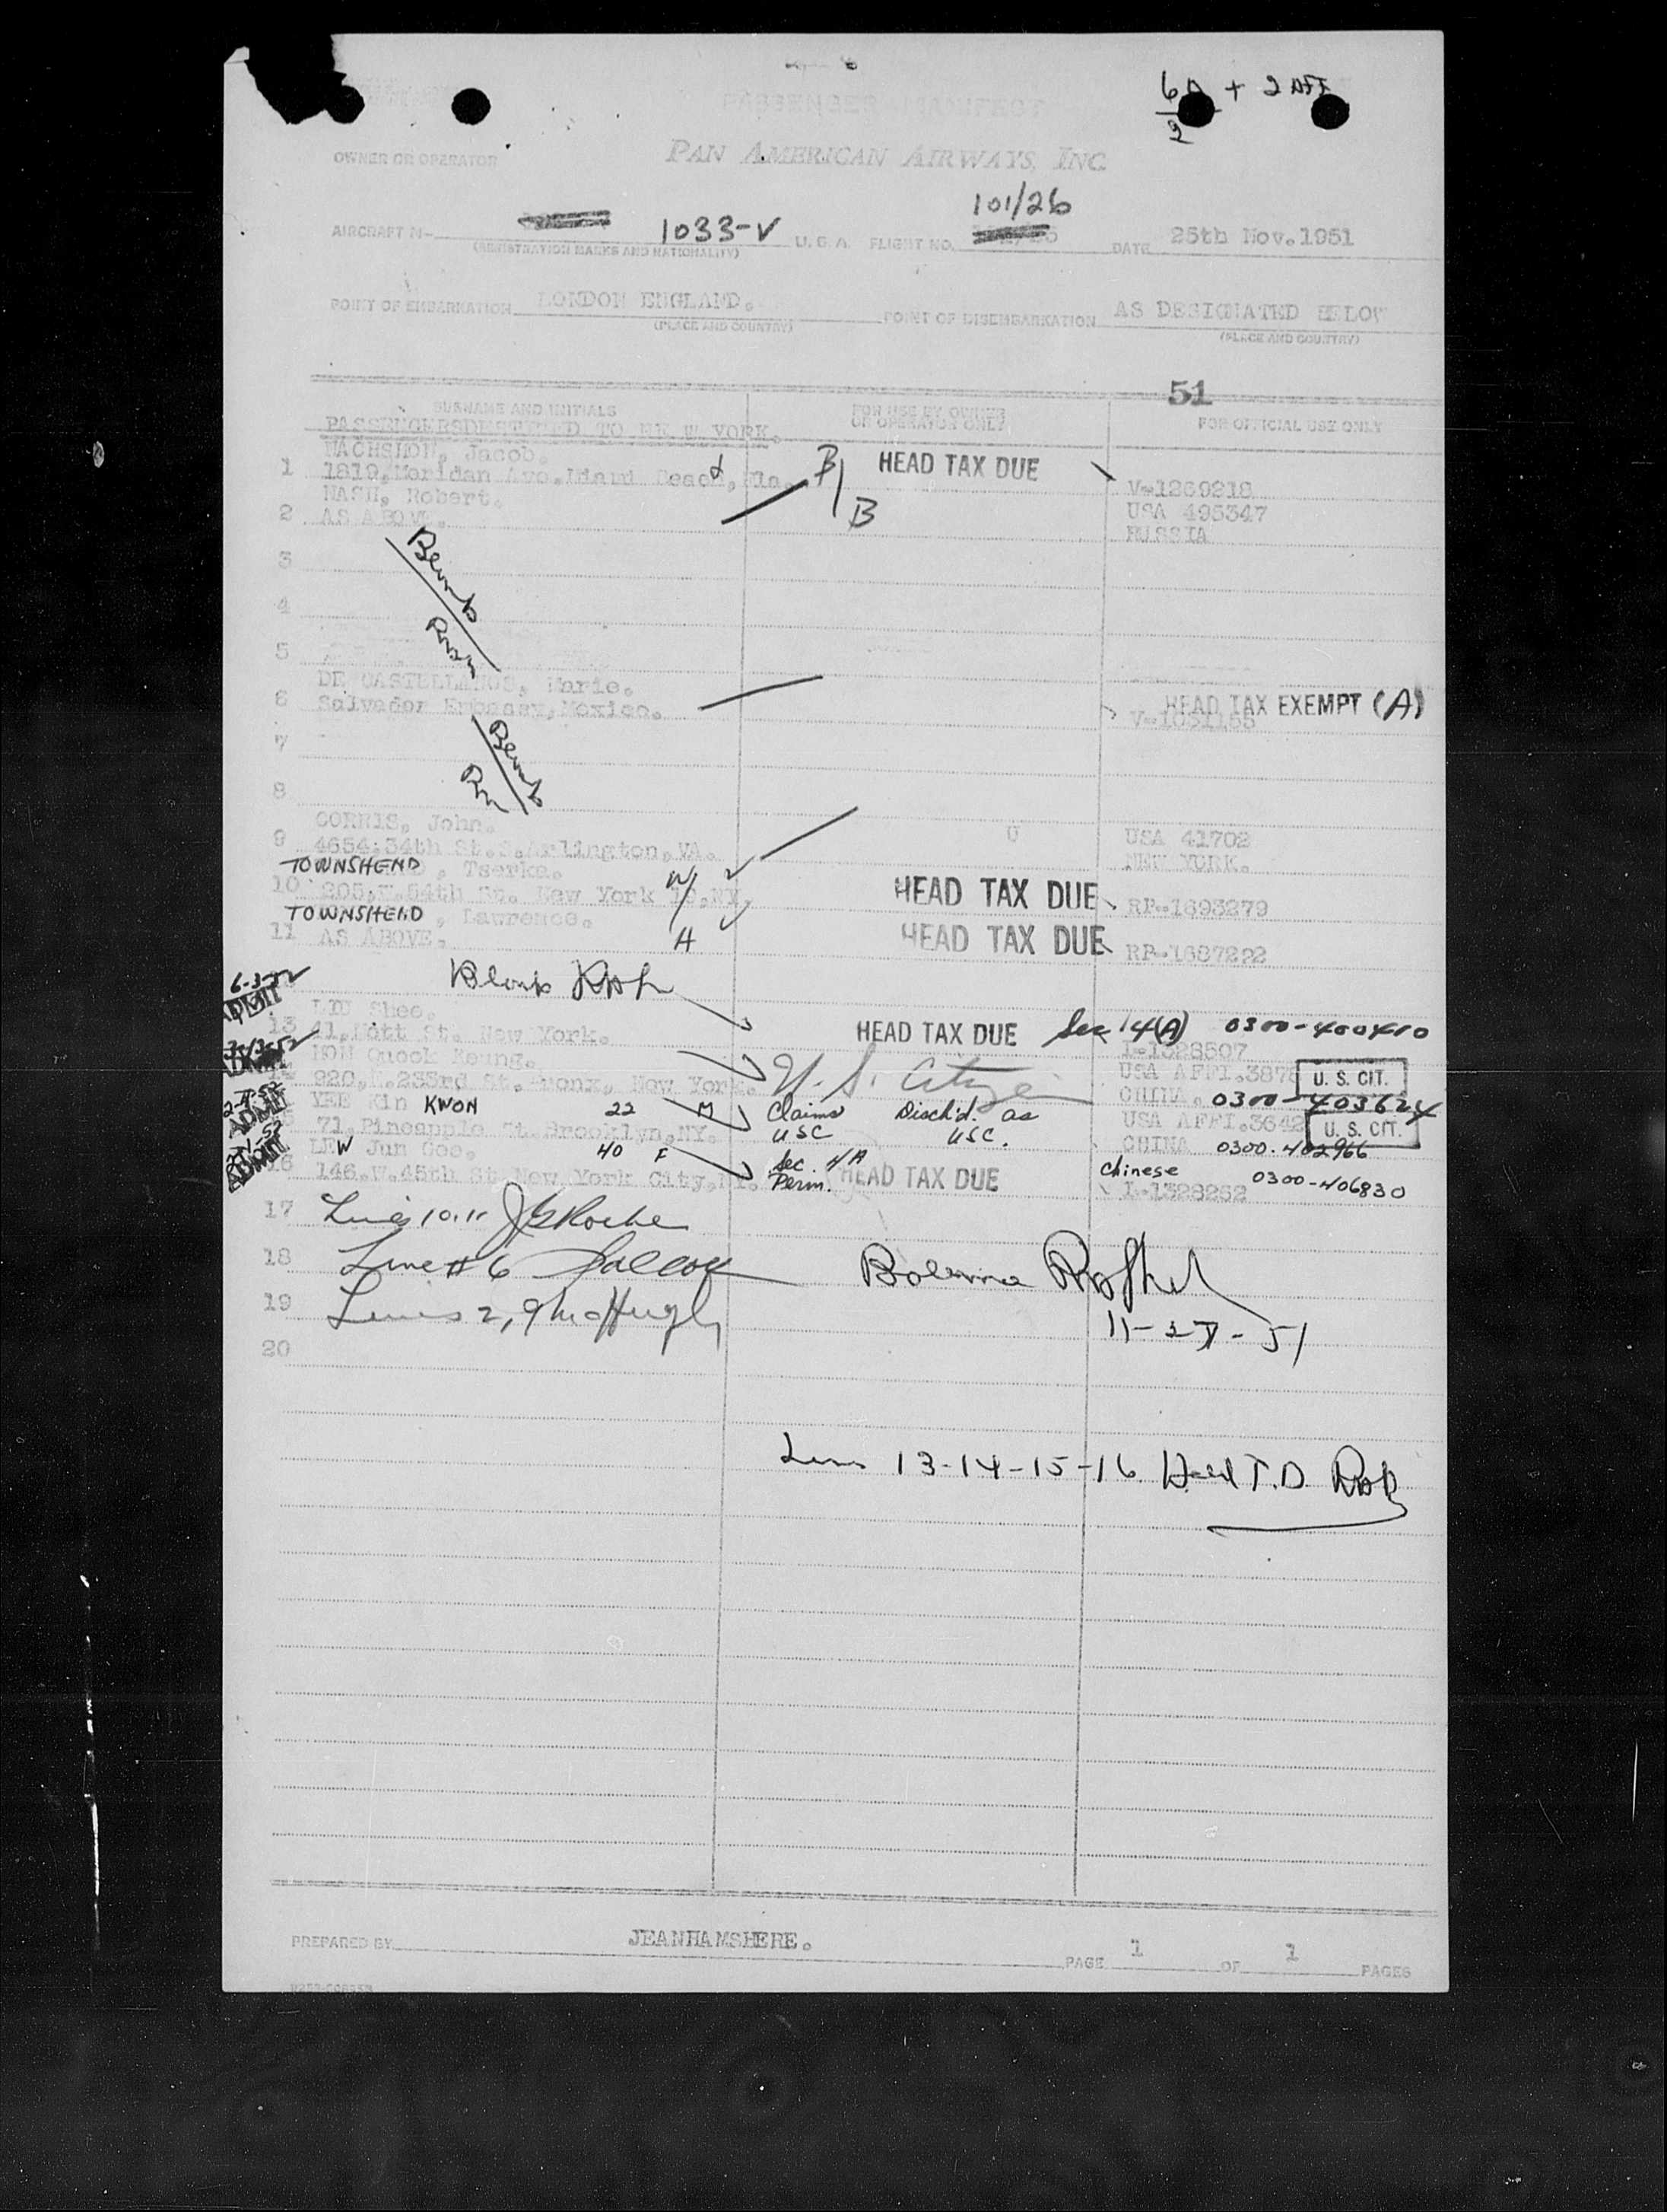 6A + 2 AFF
2
PASSENGER MANIFEST
OWNER OR OPERATOR PAN AMERICAN AIRWAYS, INC
101/26
AIRCRAFT N- 1033-V U. S. A. FLIGHT NO. DATE 25th Nov.1951
(REGISTRATION MARKS AND NATIONALITY)
POINT OF EMBARKATION LONDON ENGLAND. POINT OF DISEMBARKATION AS DESIGNATED BELOW
(PLACE AND COUNTRY) (PLACE AND COUNTRY)
51
SURNAME AND INITIALS FOR USE BY OWNER OR OPERATOR ONLY FOR OFFICIAL USE ONLY
PASSENGERSDESTINED TO NEW YORK.
NACHSHON, Jacob.
1 1819,Meridan Ave.Miami Beach, Fla. B/B HEAD TAX DUE V-1269218
NASH, Robert. USA 495347
2 AS ABOVE. RUSSIA
3
4
5
DE CASTELLANOS, Marie.
6 Salvador Embassy,Mexico. HEAD TAX EXEMPT (A)
7
8
CORRIS, John.
9 4654:34th St.S.Arlington,VA. U USA 41702
NEW YORK.
TOWNSHEND, Tserke.
10 205,W.54th St. New York 19,NY. W/ HEAD TAX DUE RP-1693279
TOWNSHEND, Lawrence.
11 AS ABOVE. H HEAD TAX DUE RP-1687292
6-3-52
ADMIT
LIU Shee.
13 41,Mott St. New York. HEAD TAX DUE Sec 4(A) 0300-400410
I-1328507
ADMIT
MON Quock Keung. U. S. Citizen USA AFFI.387
920,E.233rd St.Bronx, New York. U. S. CIT.
CHINA. 0300-403624
ADMIT
YEE Kin KWON 22 M Claims USC Disch'd. as USC. USA AFFI.3642
71,Pineapple St.Brooklyn,NY. U. S. CIT.
CHINA 0300-402966
ADMIT
LEW Jun Gee. 40 F Sec. 4A Perm. HEAD TAX DUE Chinese 0300-406830
16 146,W.45th St.New York City, I-1328262
17 Lines 10.11
18 Line #6
19 Lines 2, 9 McHugh
11-27-51
20
Lines 13-14-15-16 Held T.D.
PREPARED BY JEANHAMSHERE. PAGE 1 OF 1 PAGES